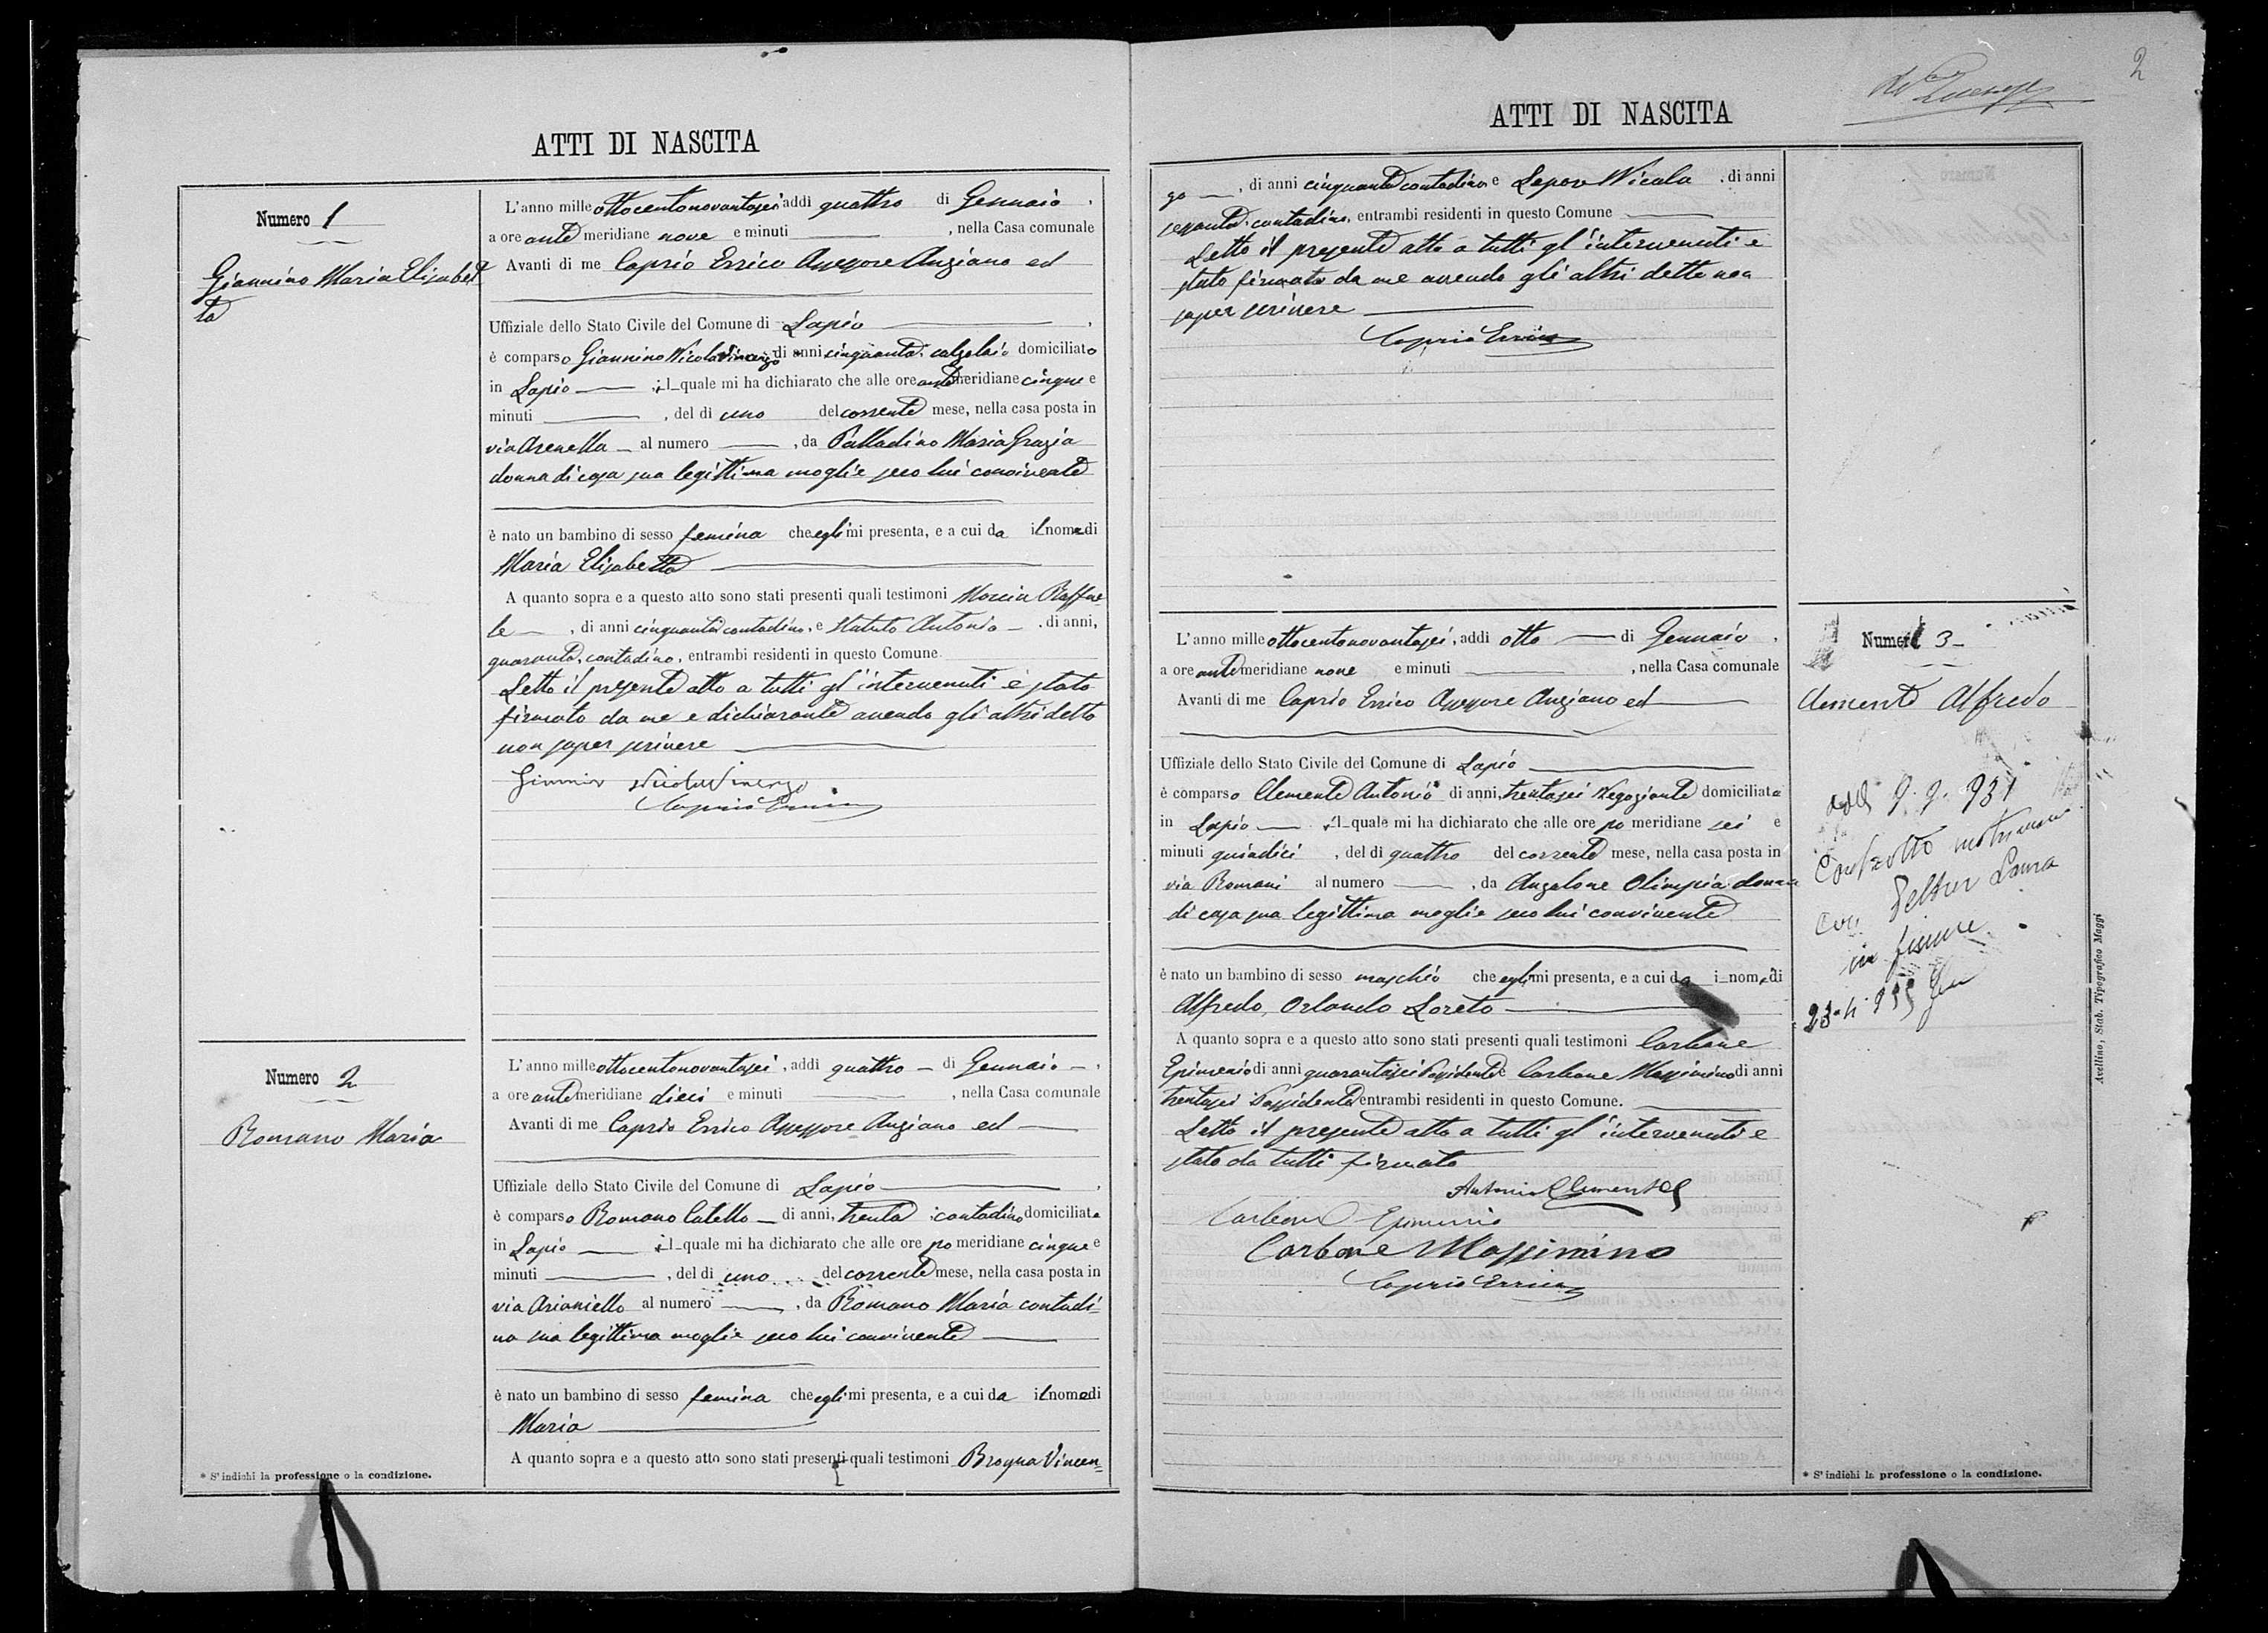 ATTI DI NASCITA
Numero 1
Giannino Maria Elisabet
ta
L'anno mille ottocentonovantasei addì quattro di Gennaio,
a ore ante meridiane nove e minuti , nella Casa comunale
Avanti di me Caprio Errico Assessore Anziano ed
Uffiziale dello Stato Civile del Comune di Lapio ,
è comparso Giannino Nicola Vincenzo di anni cinquanta, calzolaio domiciliato
in Lapio il quale mi ha dichiarato che alle ore antemeridiane cinque e
minuti , del dì uno del corrente mese, nella casa posta in
via Arenella al numero , da Palladino Maria Grazia
donna di casa sua legittima moglie seco lui convivente
è nato un bambino di sesso femina che egli mi presenta, e a cui da il nome di
Maria Elisabetta
A quanto sopra e a questo atto sono stati presenti quali testimoni Raffae
le , di anni cinquanta contadino, e Statuto Antonio . di anni,
quaranta, contadino, entrambi residenti in questo Comune.
Letto il presente atto a tutti gl'intervenuti è stato
firmato da me e dichiarante avendo gli altri detto
non saper scrivere
Giannino Nicola Vincenzo
Caprio Errico
Numero 2
Romano Maria
L'anno mille ottocentonovantasei, addì quattro di Gennaio ,
a ore antemeridiane dieci e minuti , nella Casa comunale
Avanti di me Caprio Errico Assessore Anziano ed
Uffiziale dello Stato Civile del Comune di Lapio ,
è comparso Romano Catello di anni, trenta contadino domiciliato
in Lapio il quale mi ha dichiarato che alle ore po meridiane cinque e
minuti , del dì uno del corrente mese, nella casa posta in
via Arianiello al numero , da Romano Maria contadi=
na sua legittima moglie seco lui convivente
è nato un bambino di sesso femina che egli mi presenta, e a cui da il nome di
Maria
A quanto sopra e a questo atto sono stati presenti quali testimoni Brogna Vincen=
* S'indichi la professione o la condizione.
2
ATTI DI NASCITA
zo , di anni cinquanta contadino e Lepore Nicola . di anni
sessanta, contadino, entrambi residenti in questo Comune
Letto il presente atto a tutti gl'intervenuti è
stato firmato da me avendo gli altri detto non
saper scrivere
Caprio Errico
Numero 3
Clemente Alfredo
L'anno mille ottocentonovantasei, addì otto di Gennaio ,
a ore antemeridiane nove e minuti , nella Casa comunale
Avanti di me Caprio Errico Assessore Anziano ed
Uffiziale dello Stato Civile del Comune di Lapio
è comparso Clemente Antonio di anni, trentasei Negoziante domiciliato
in Lapio il quale mi ha dichiarato che alle ore po meridiane sei e
minuti quindici , del dì quattro del corrente mese, nella casa posta in
via Romani al numero , da Anzalone Olimpia donna
di casa sua legittima moglie seco lui convivente
è nato un bambino di sesso maschio che egli mi presenta, e a cui da i nome di
Alfredo, Orlando Loreto
A quanto sopra e a questo atto sono stati presenti quali testimoni Carbone
Epimenio di anni quarantasei Possidente e Carbone Massimino di anni
trentasei Possidente entrambi residenti in questo Comune.
Letto il presente atto a tutti gl'intervenuti è
stato da tutti firmato
Antonio Clemente
Carbone Epimenio
Carbone Massimino
Caprio Errico
9. 9. 931
Contratto matrimonio
con Laura
in fiume
* S'indichi la professione o la condizione.
Avellino, Stab. Tipografico Maggi